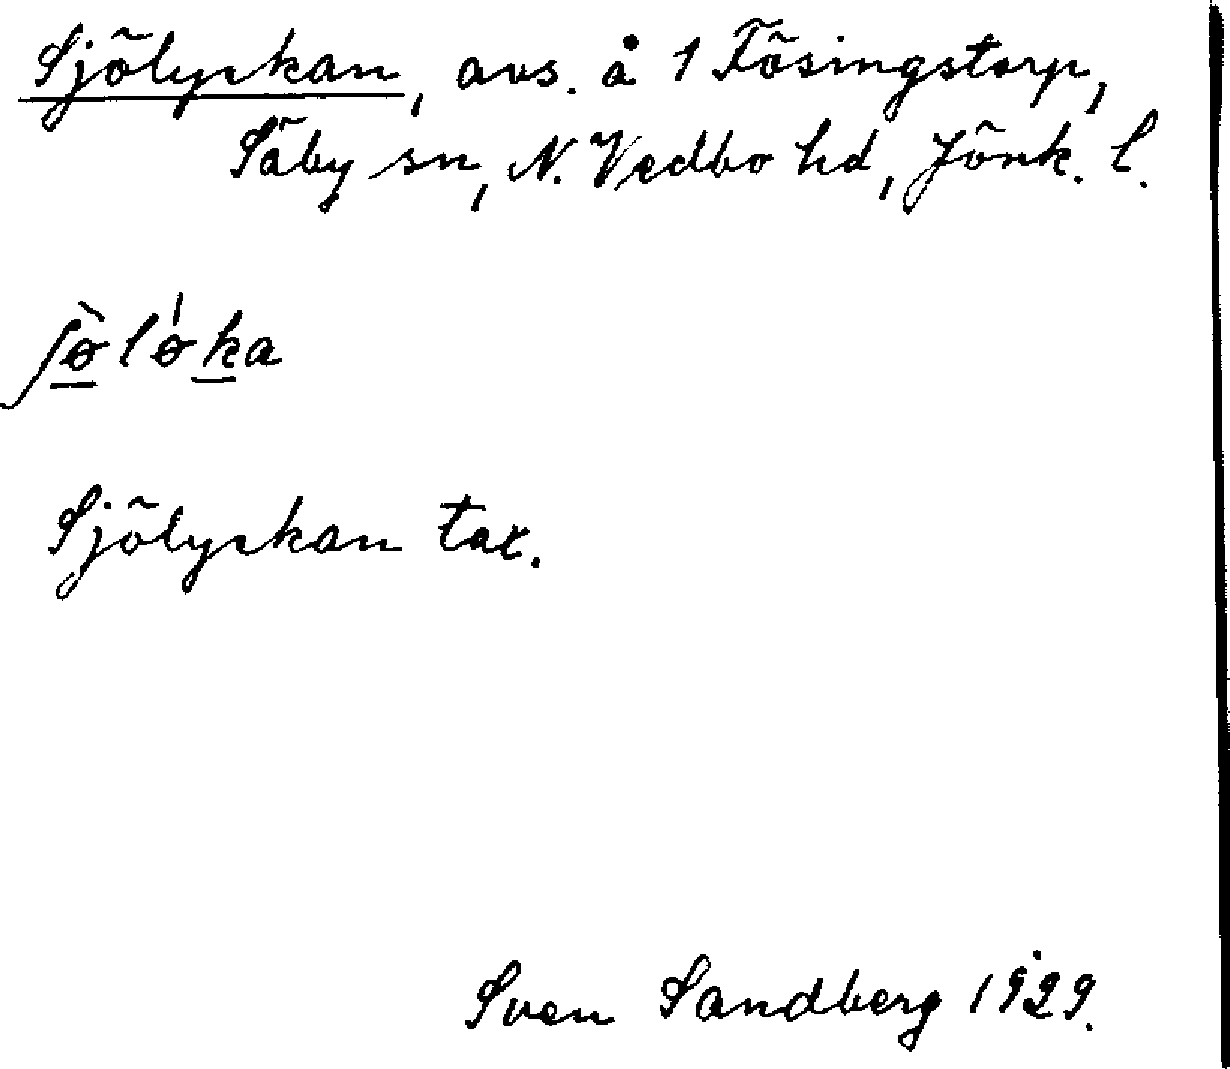 Sjölyckan, avs. å 1 Fösingstorp,
Säby sn, N. Vedbo hd, Jönk. l.
ʃø̀løka
Sjölyckan tax.
Sven Sandberg 1929.